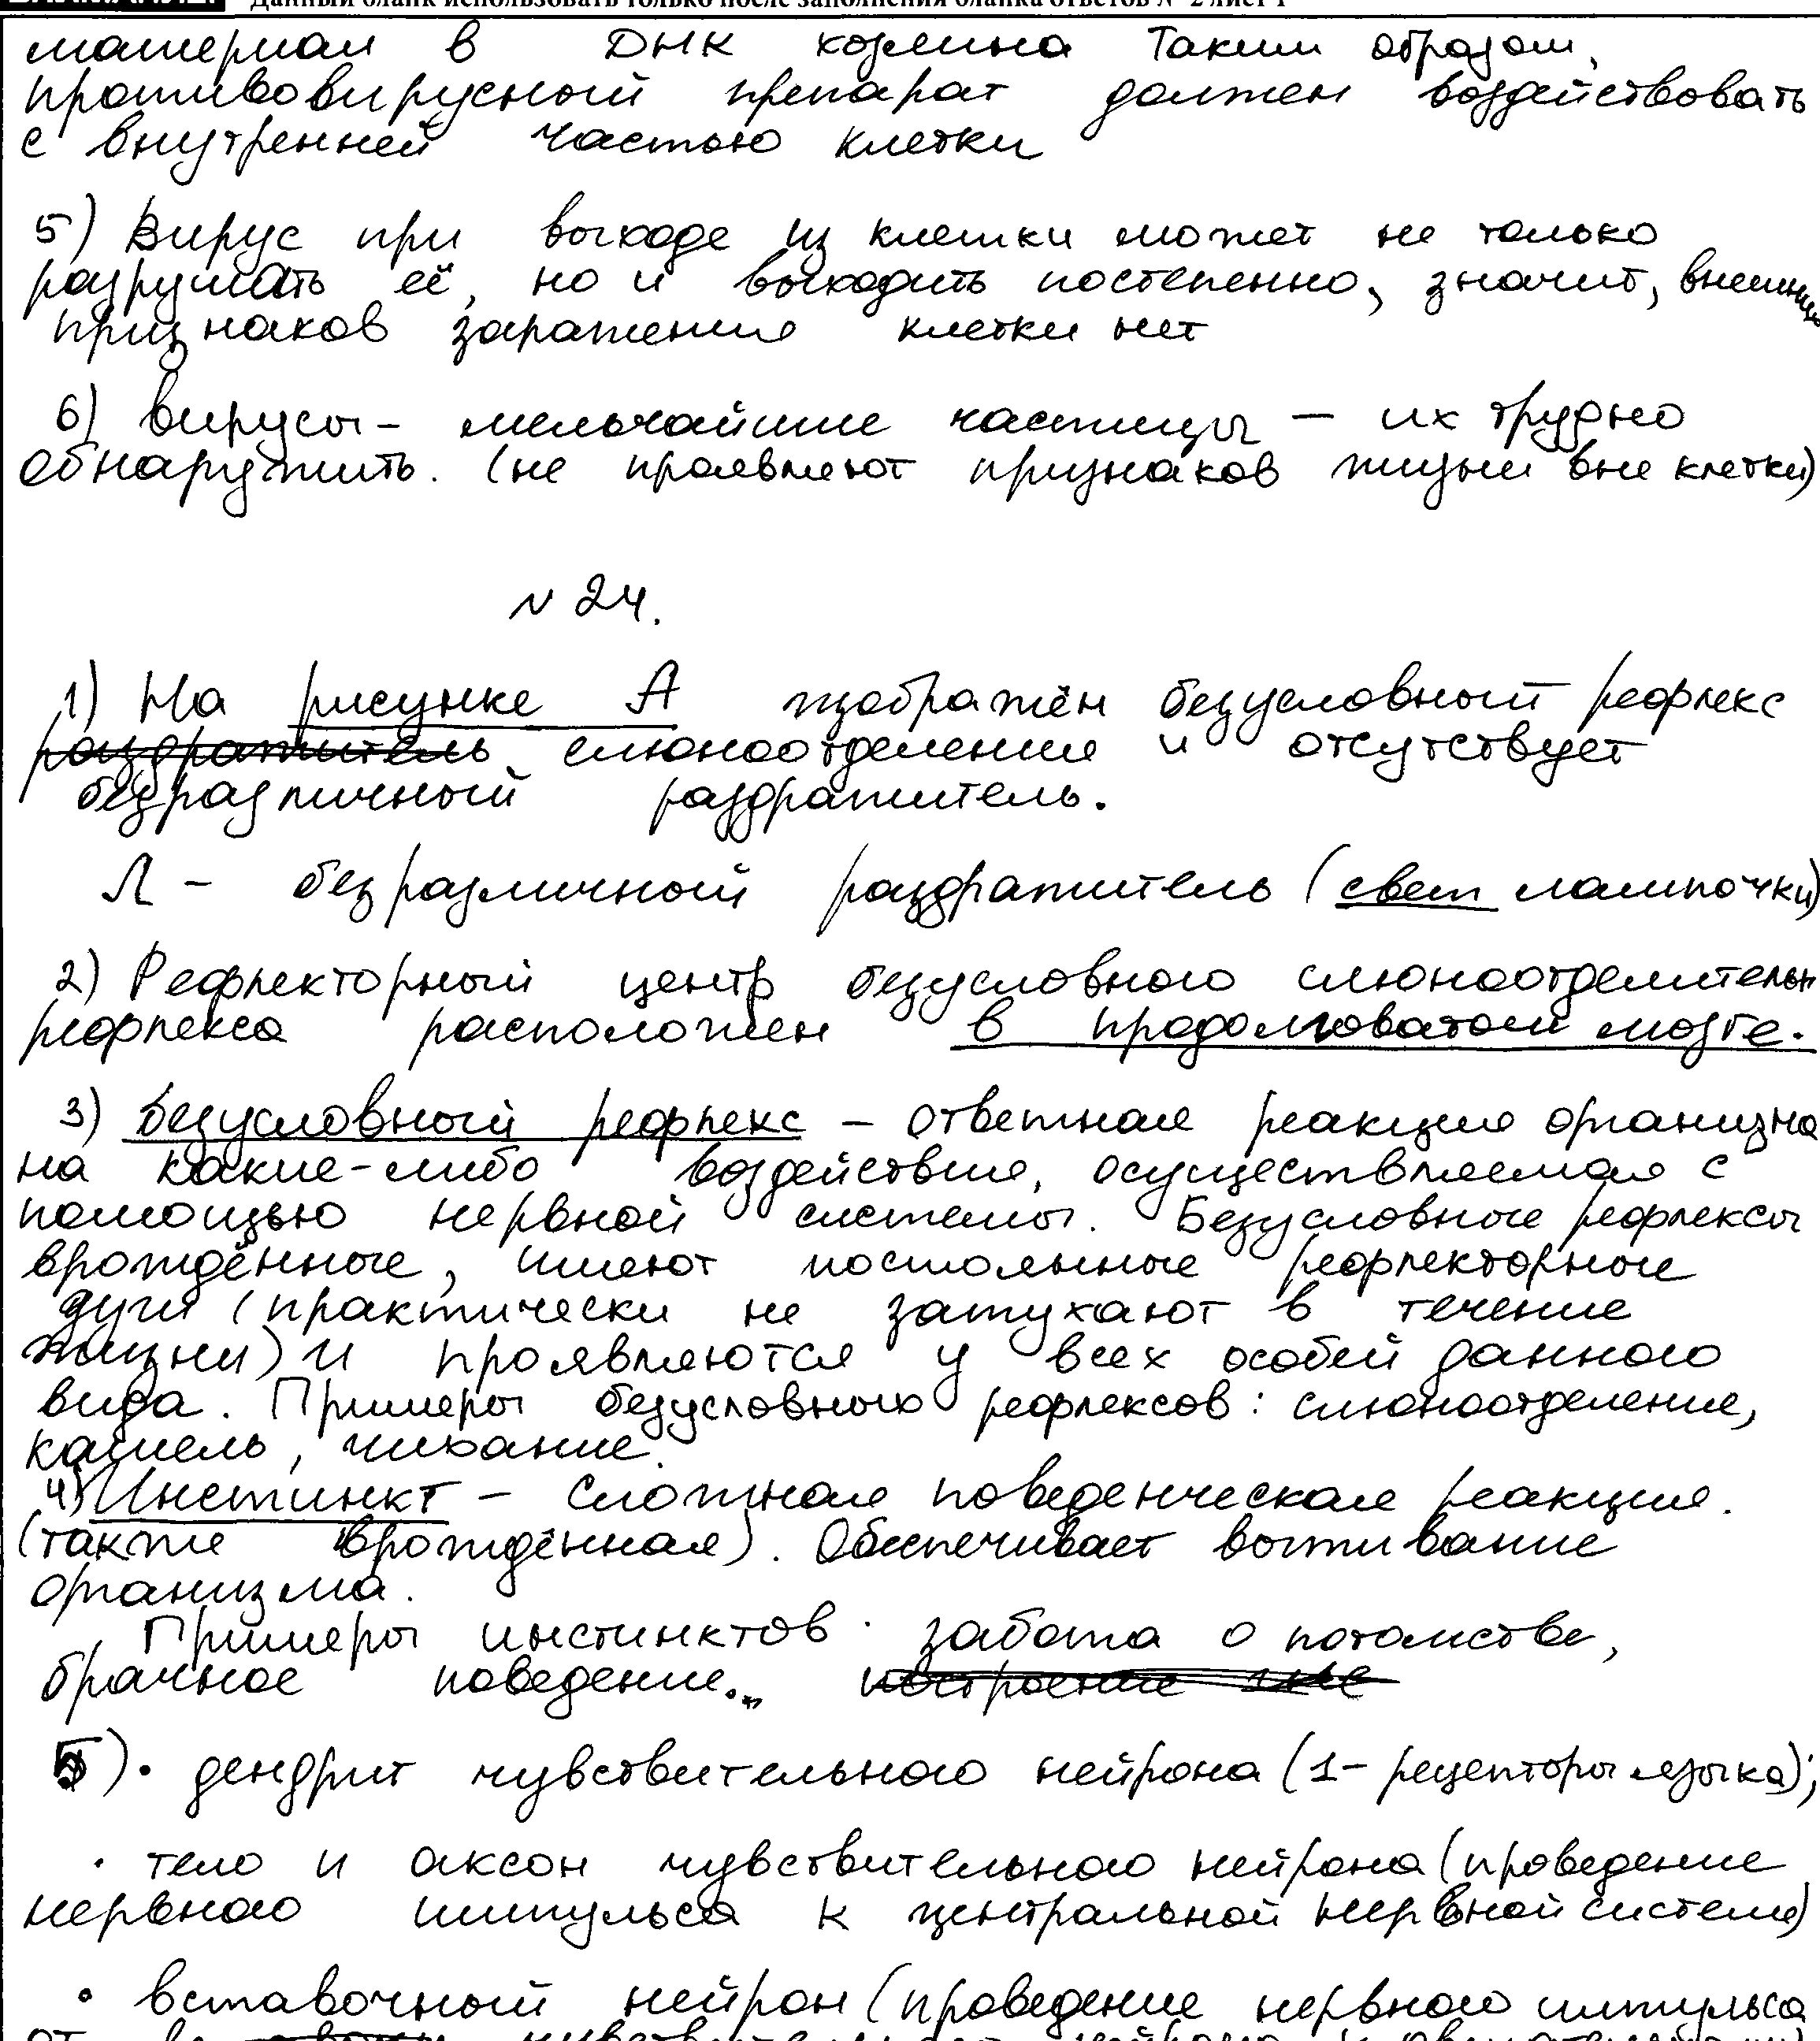 Данный бланк использовать только после заполнения бланка ответов № 2 лист 1
материал в ДНК хозяина Таким образом,
противовирусный препарат должен воздействовать
с внутренней частью клетки
5) Вирус при выходе из клетки может не только
разрушать её, но и выходить постепенно, значит, внешних
признаков заражения клетки нет
6) вирусы - мельчайшие частицы - их трудно
обнаружить. (не проявляют признаков жизни вне клетки)
N 24.
1) На рисунке А изображён безусловный рефлекс
раздражитель слюноотделения и отсутствует
безразличный раздражитель.
Л - безразличный раздражитель (свет лампочки)
2) Рефлекторный центр безусловного слюноотделительн
рефлекса расположен в продолговатом мозге.
3) Безусловный рефлекс - ответная реакция организма
на какие-либо воздействия, осуществляемая с
помощью нервной системы. Безусловные рефлексы
врождённые, имеют постоянные рефлекторные
дуги (практически не затухают в течение
жизни) и проявляются у всех особей данного
вида. Примеры безусловных рефлексов: слюноотделение,
кашель, чихание.
4) Инстинкт - сложная поведенческая реакция.
(также врождённая). Обеспечивает выживание
организма.
Примеры инстинктов: забота о потомстве,
брачное поведение. построение
5) • дендрит чувствительного нейрона (1- рецепторы языка);
• тело и аксон чувствительного нейрона (проведение
нервного импульса к центральной нервной системе)
• вставочный нейрон (проведение нервного импульса